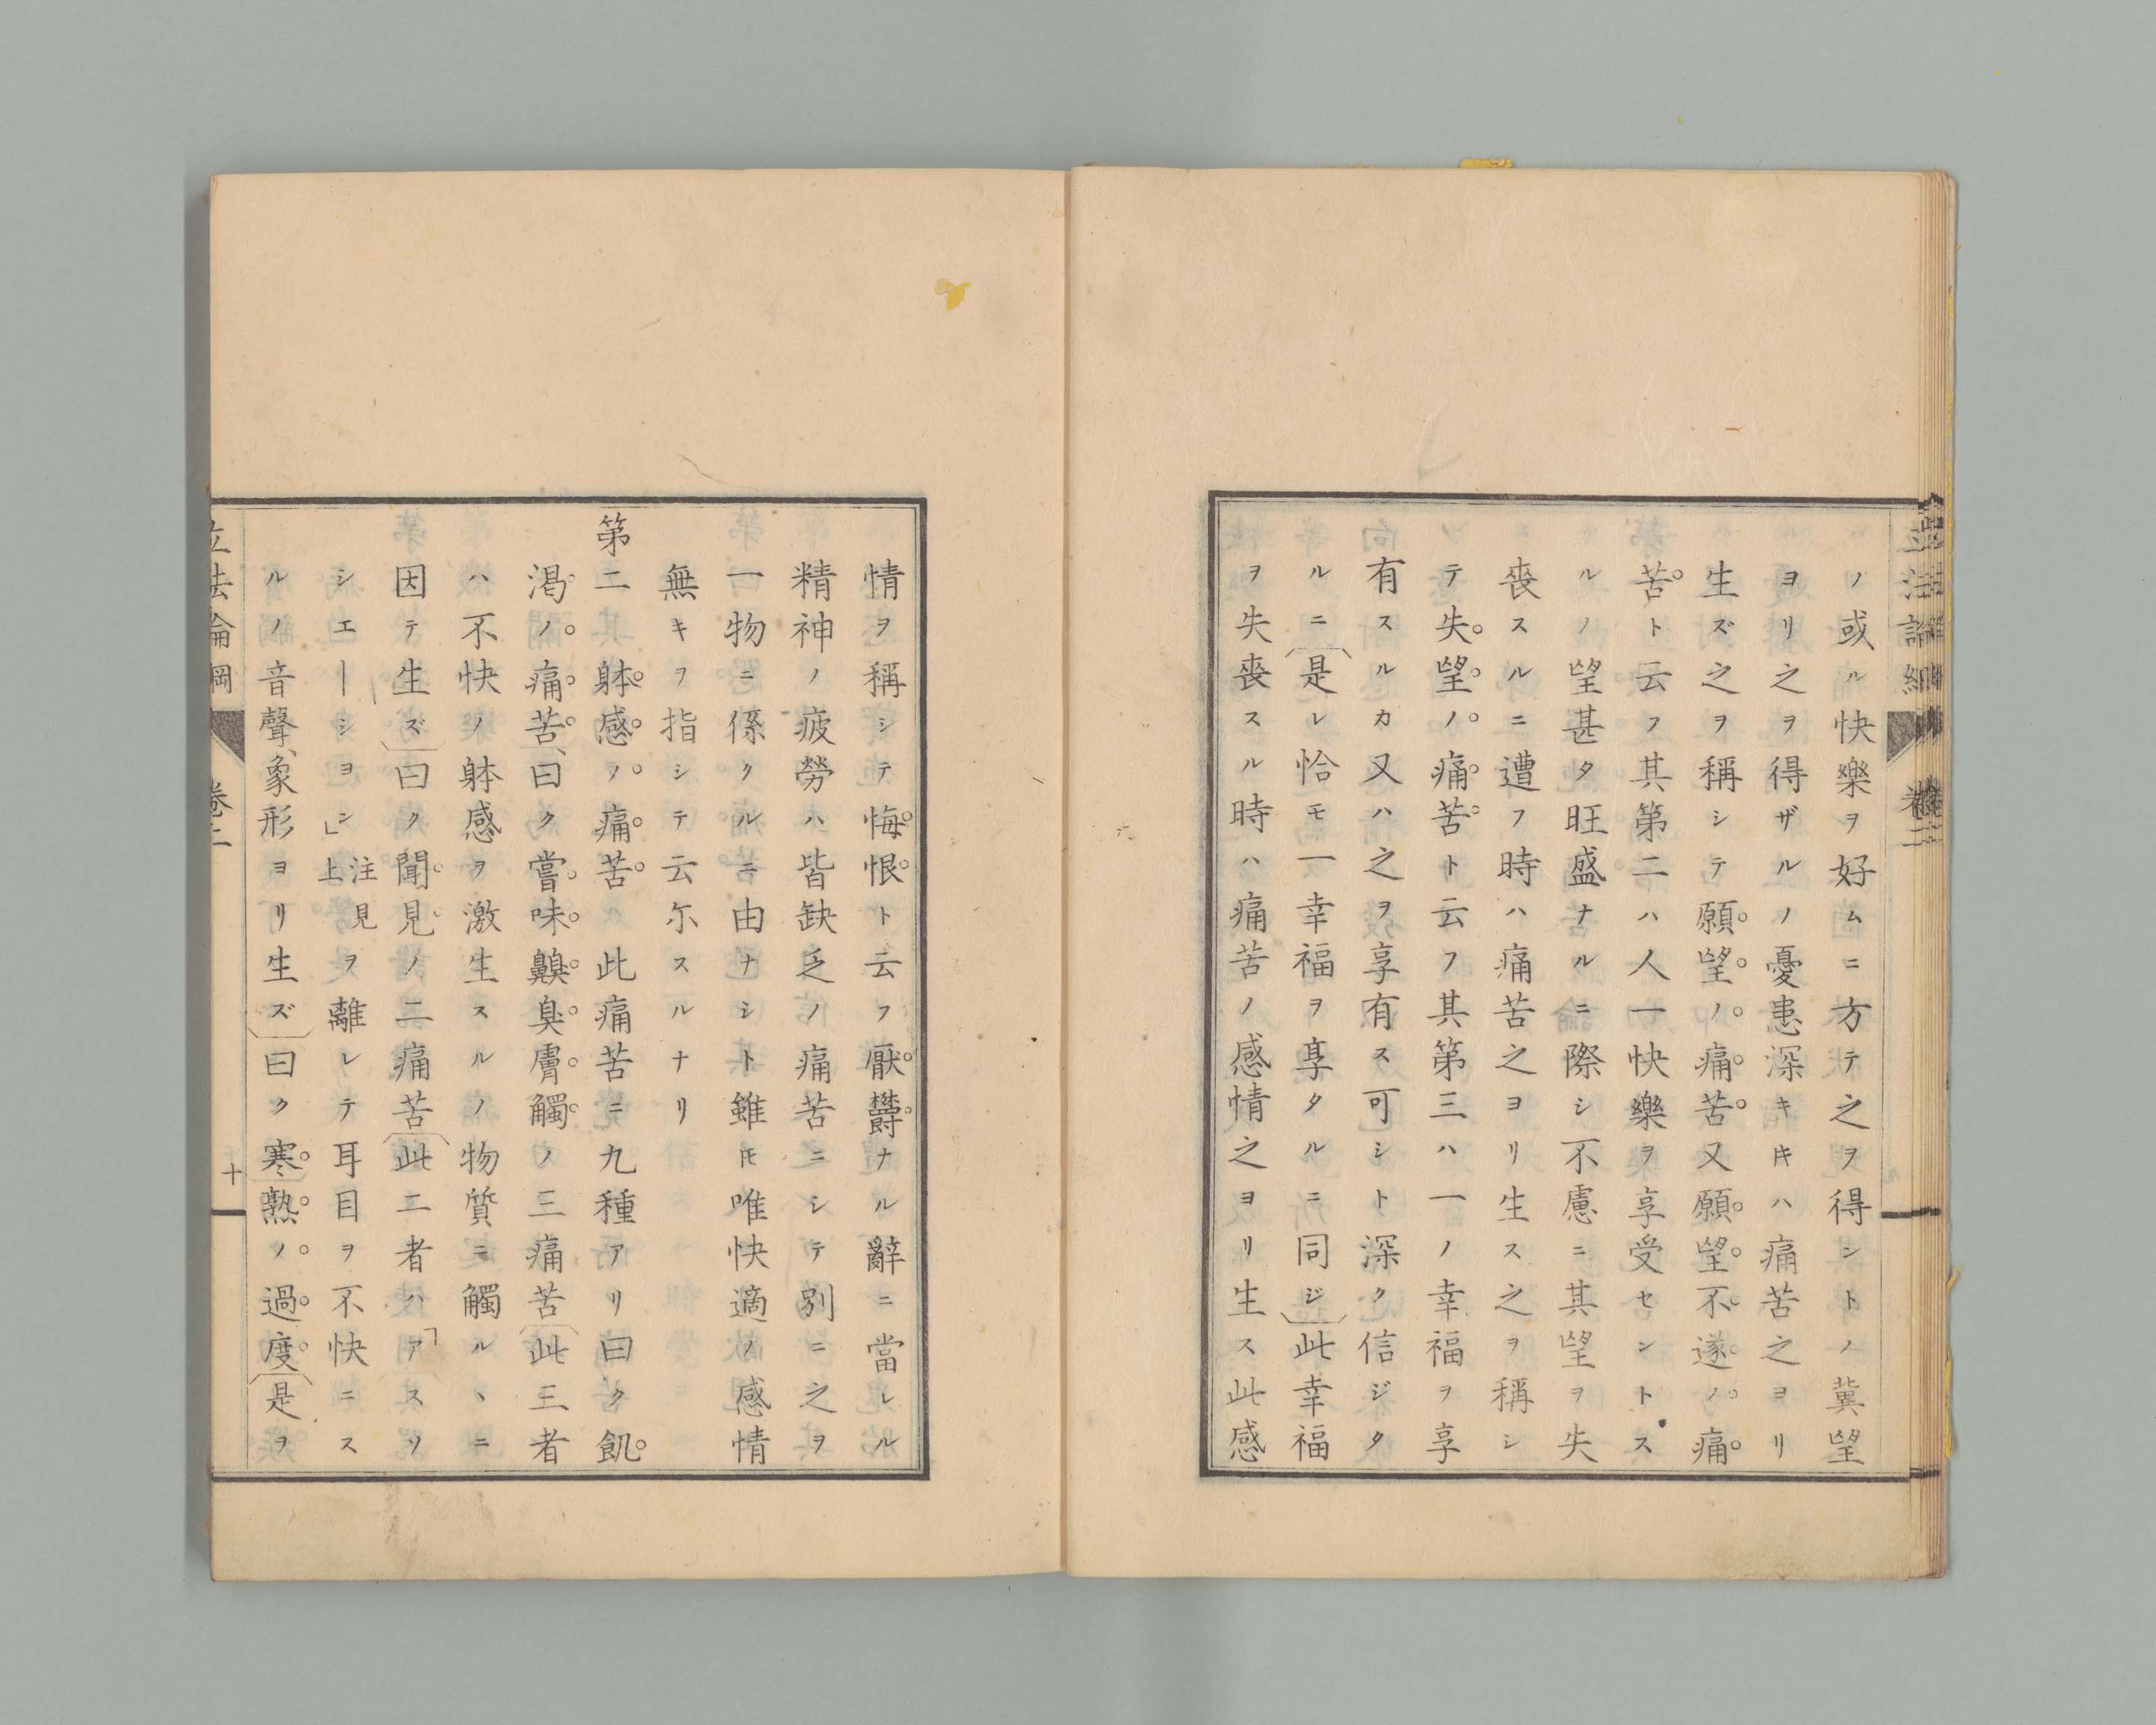 ノ或ル快樂ヲ好ムニ方テ之ヲ得シトノ冀望
ヨリ之ヲ得ザルノ憂患深キキハ痛苦之ヨリ
生ズ之ヲ稱シテ願望ノ痛苦又願望不遂ノ痛
苦ト云フ其第二ハ人一快樂ヲ享受セントス
ルノ望甚タ旺盛ナルニ際シ不慮ニ其望ヲ失
喪スルニ遭フ時ハ痛苦之ヨリ生ス之ヲ稱シ
テ失望ノ痛苦ト云フ其第三ハ一ノ幸福ヲ享
有スルカ又ハ之ヲ享有ス可シト深ク信ジタ
ルニ〔是レ恰モ一幸福ヲ享タルニ同ジ〕此幸福
ヲ失喪スル時ハ痛苦ノ感情之ヨリ生ス此感
情ヲ稱シテ悔恨ト云フ厭欝ナル辭ニ當レル
精神ノ疲勞ハ皆缺乏ノ痛苦ニシテ別ニ之ヲ
一物ニ係クルニ由ナシト雖𪜈唯快適ノ感情
無キヲ指シテ云尓スルナリ
第二 躰感ノ痛苦 此痛苦ニ九種アリ曰ク飢
渇ノ痛苦、曰ク嘗味齅臭膚觸ノ三痛苦〔此三者
ハ不快ノ躰感ヲ激生スルノ物質ニ觸ルヽニ
因テ生ズ〕曰ク聞見ノ二痛苦〔此二者ハ「ヲスソ
シエーシヨン」注見上ヲ離レテ耳目ヲ不快ニス
ルノ音聲、象形ヨリ生ズ〕曰ク寒熱ノ過度〔是ヲ
立法論綱 卷二 十